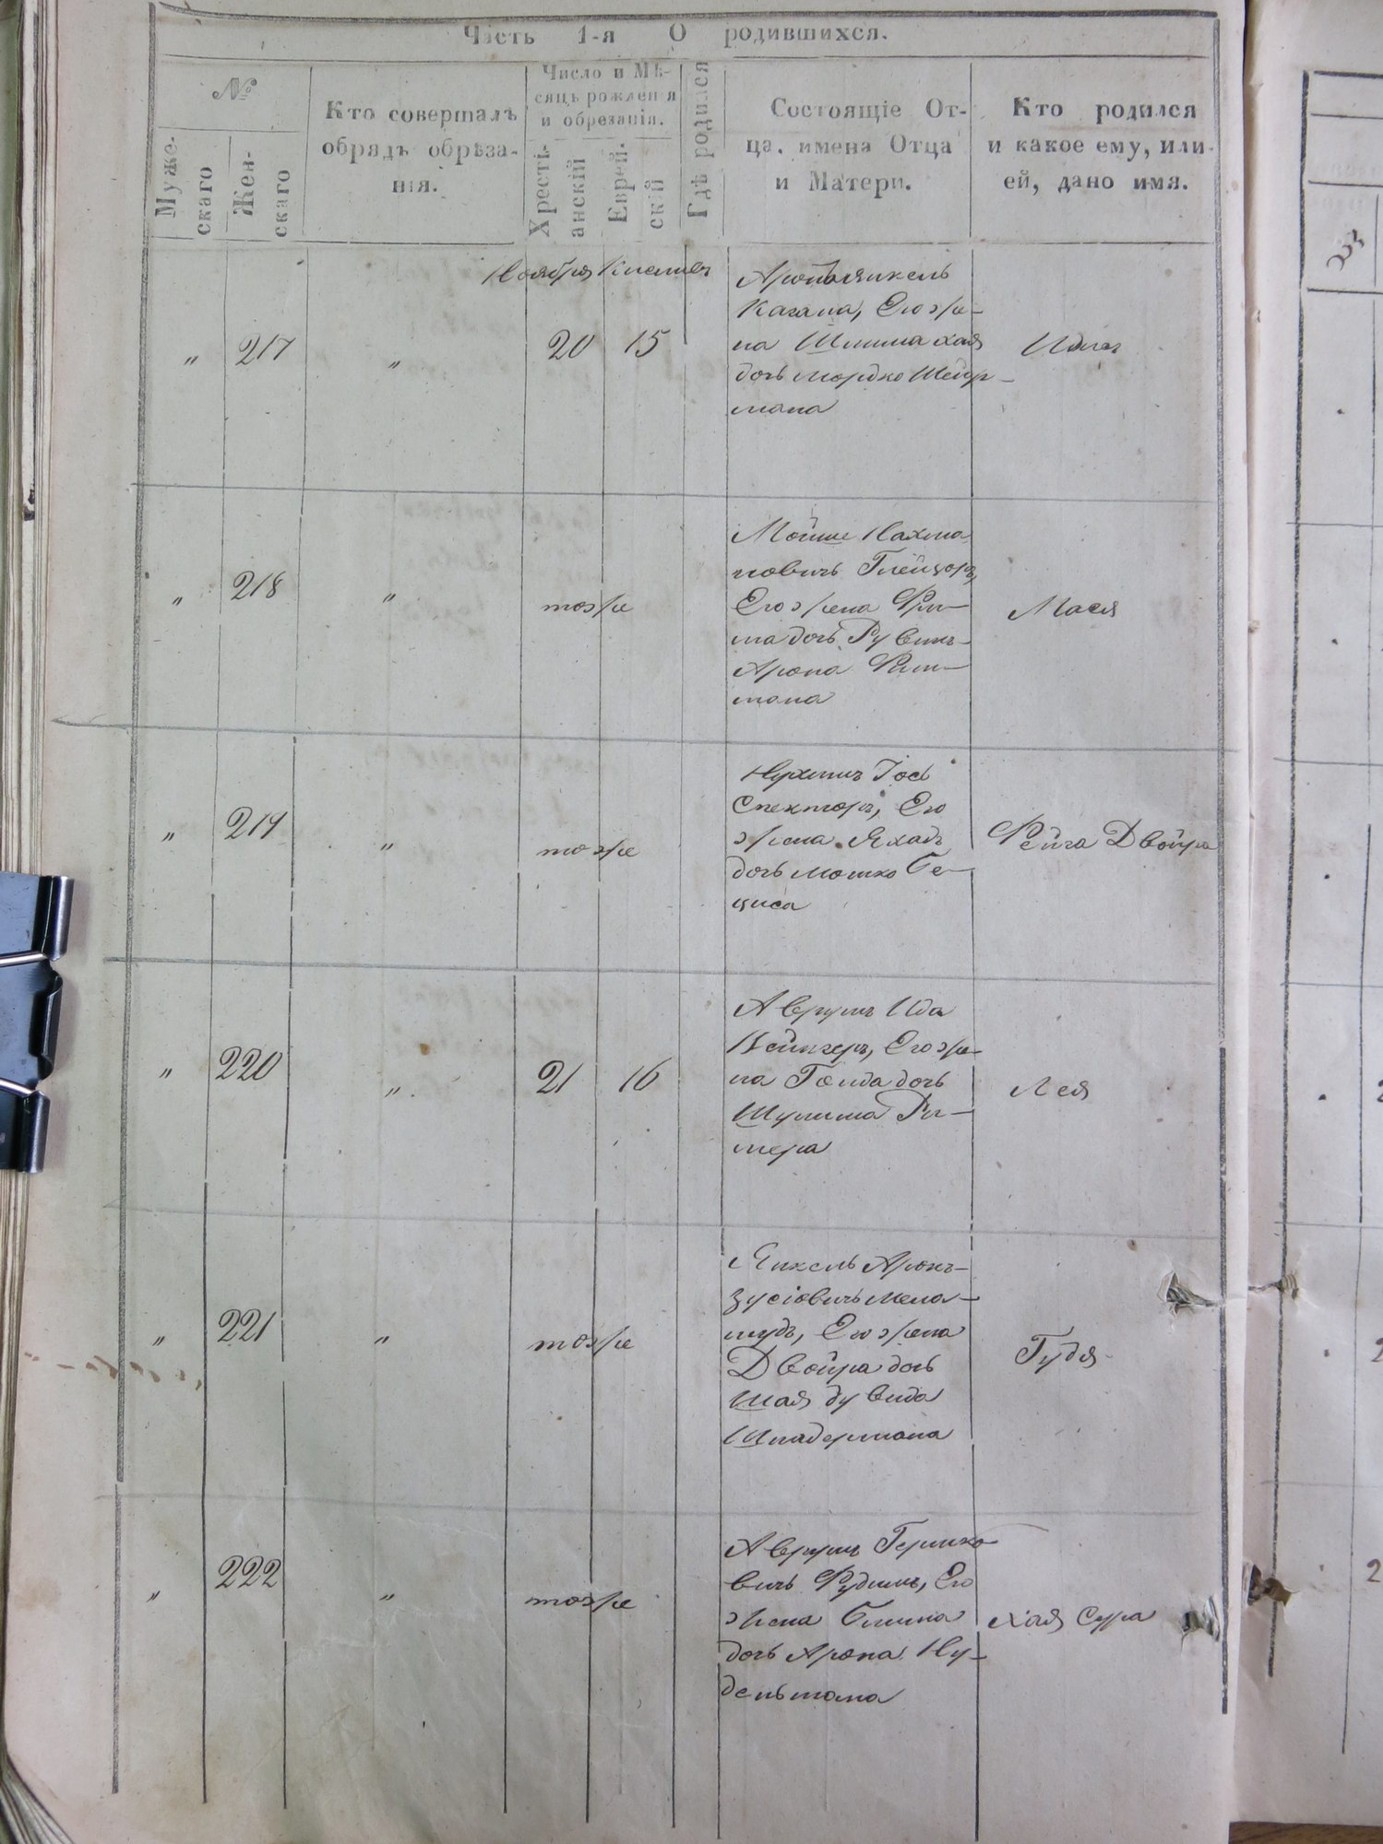 Часть 1-я О родившихся.
№
Муже-
скаго
Жен-
скаго
Кто совершалъ
обрядъ обрѣза-
нія.
Число и Мѣ-
сяцъ рожденія
и обрезанія.
Хрестi-
анскій
Еврей-
скій
Гдѣ родился
Состоящіе От-
ца, имена Отца
и Матери.
Кто родился
и какое ему, или
ей, дано имя.
Ноября Кислевъ
„ 217 „ 20 15
Аронъ Янкель
Кагана, Его же-
на Шлима хая
дочь Мордко Шейр-
мана
„ 218 „ тоже
Мойше Нахма-
новичь
Его жена Фри-
ма дочь Рувинъ-
Арона
мана
Мася
„ 219 „ тоже
Нухимъ Іось
Спекторъ, Его
жена Яхадъ
дочь Мошко Бе-
циса
Фейга Двойра
„ 220 „ 21 16
Аврумъ Ида
Вейнгеръ, Его же-
на Голда дочь
Шулима Ри-
мера
Лея
„ 221 „ тоже
Янкель Аронъ-
Зусіовичь Мела-
мудъ, Его жена
Двойра дочь
Шая Дувида
Шнадермана
Гудя
„ 222 „ тоже
Аврумъ Гершко-
вичь Фудимъ, Его
жена Блима
дочь Арона Ну-
дельмана
Хая Сура